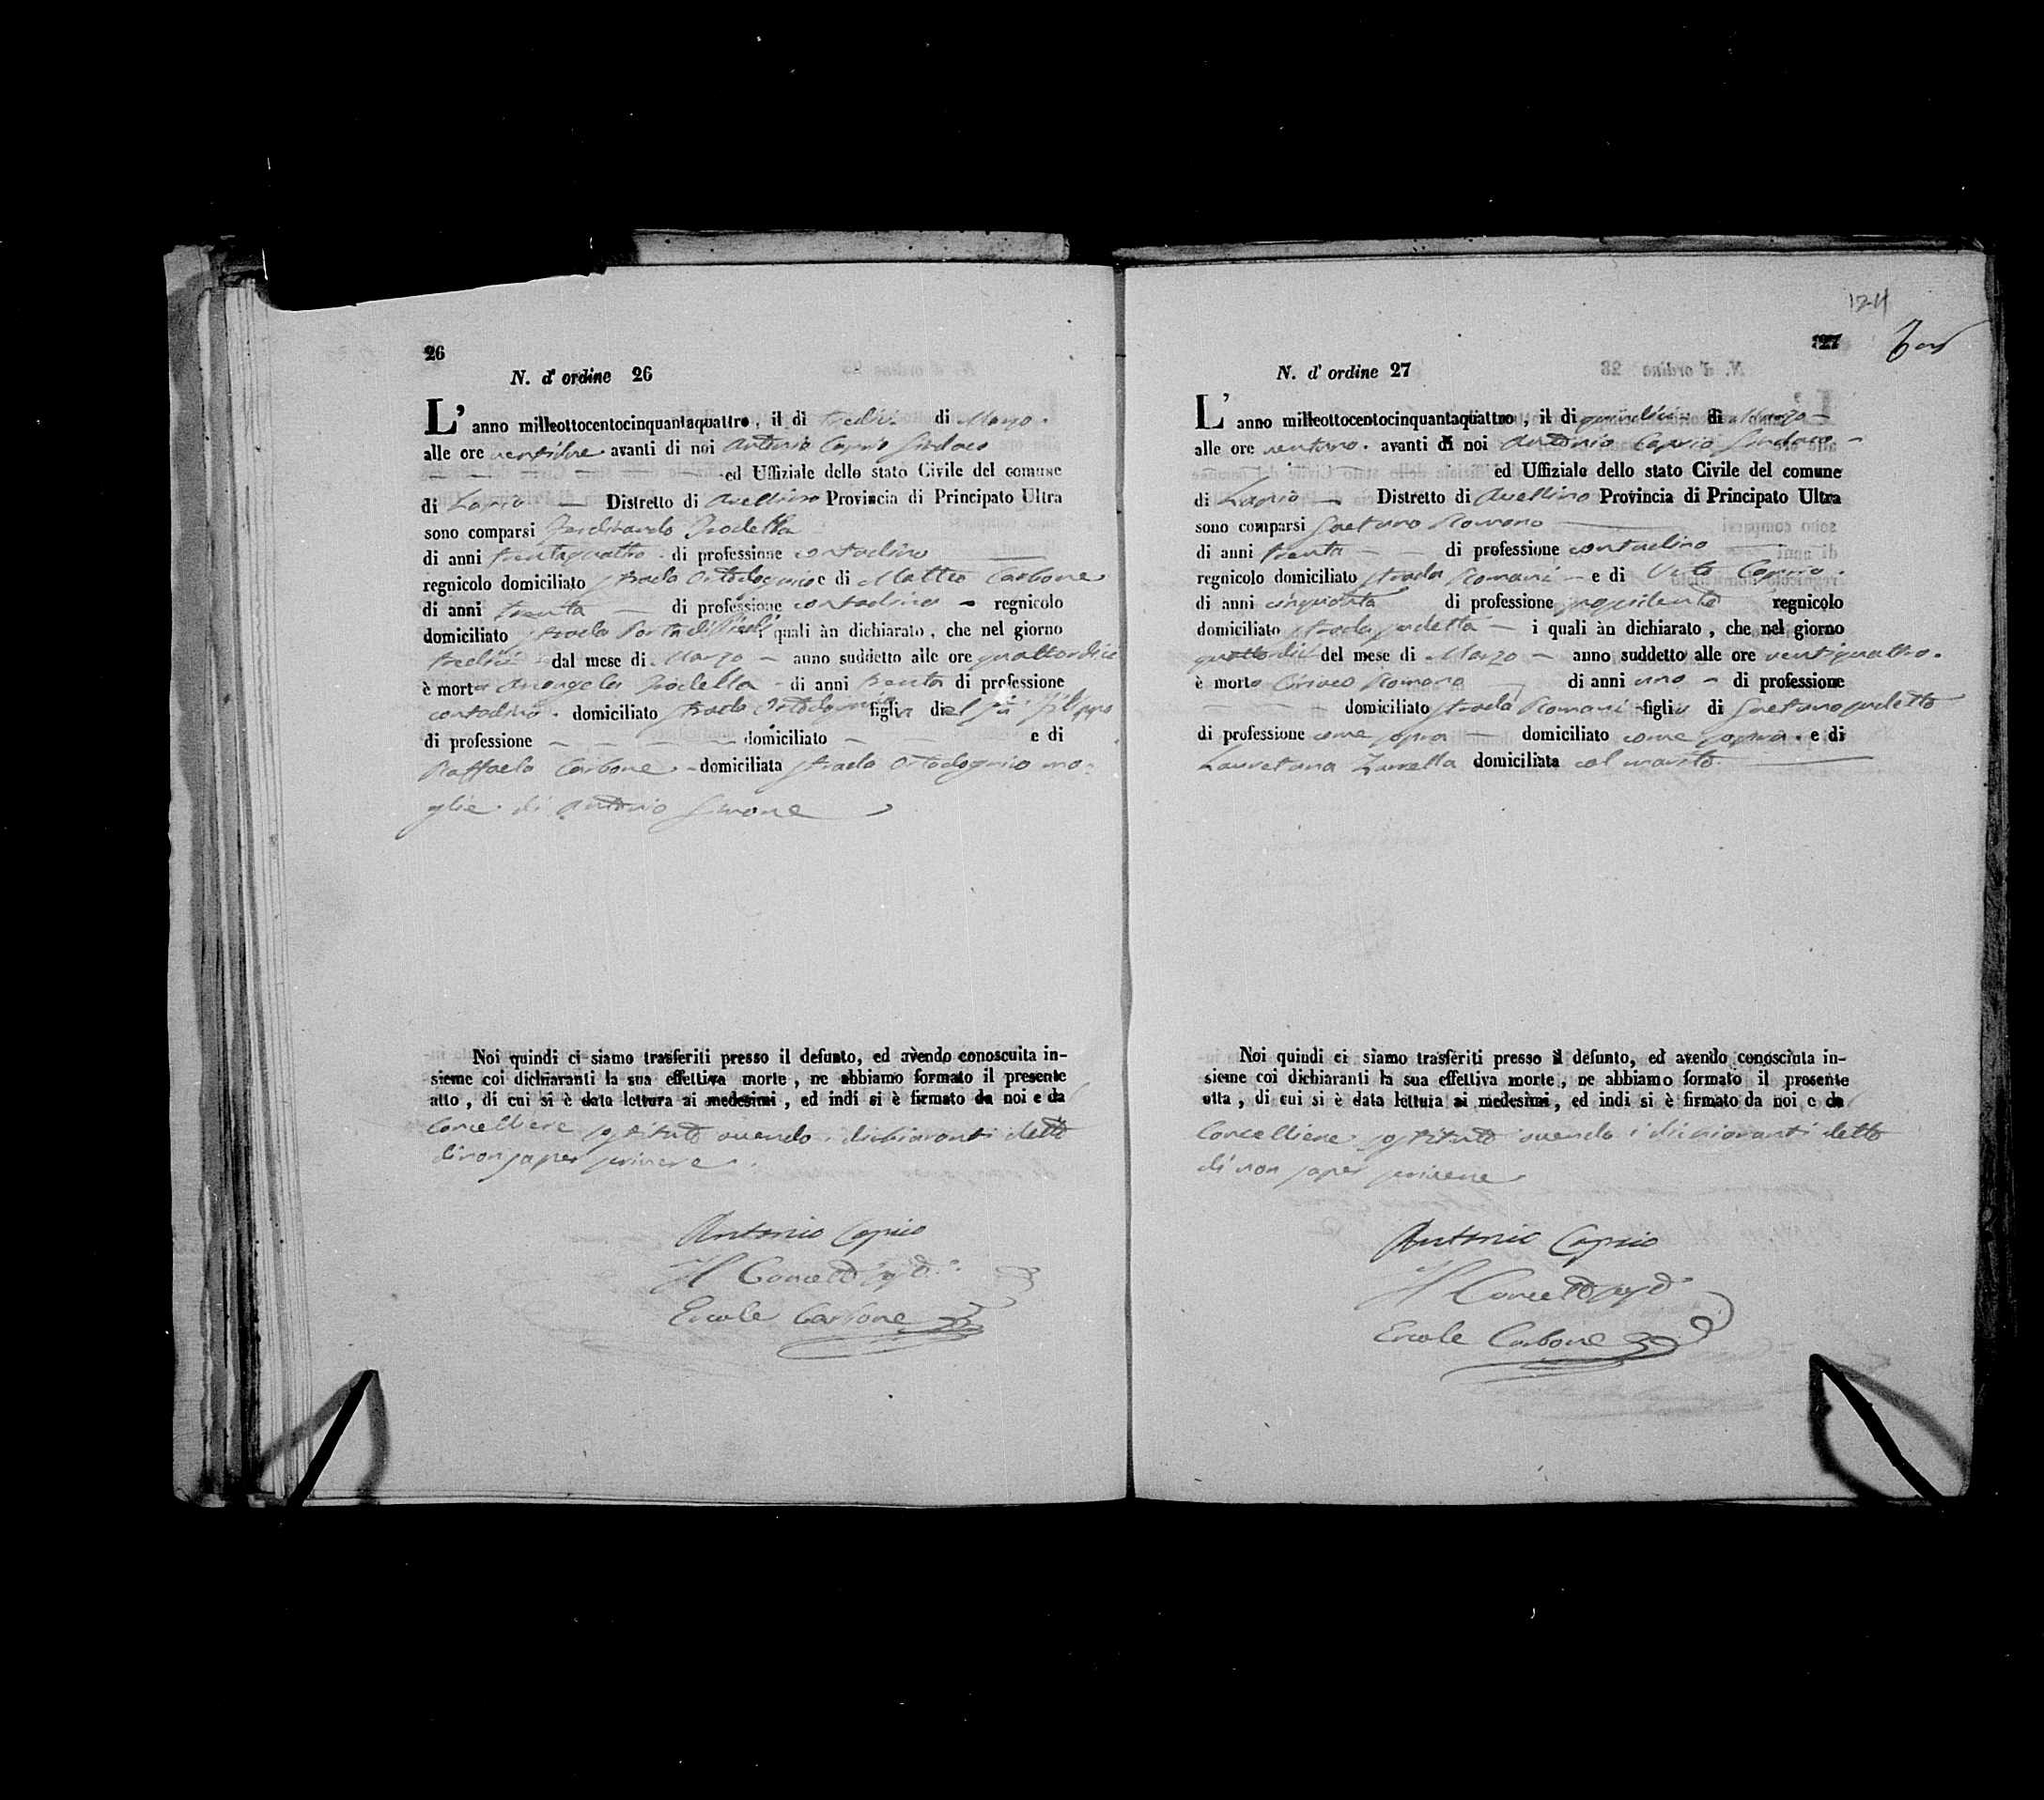 26
N. d' ordine 26
L' anno milleottocentocinquantaquattro, il dì tredici di Marzo.
alle ore ventidue avanti di noi Antonio Caprio Sindaco
ed Uffiziale dello stato Civile del comune
di Lapio — Distretto di Avellino Provincia di Principato Ultra
sono comparsi Ferdinando Irodella
di anni trentaquattro - di professione contadino
regnicolo domiciliato strada e di Matteo Carbone
di anni trenta — di professione contadino - regnicolo
domiciliato strada i quali àn dichiarato, che nel giorno
tredici dal mese di Marzo — anno suddetto alle ore quattordici
è morta Arcangela Irodella - di anni trenta di professione
contadina. domiciliato strada figlia del fu Filippo
di professione — — — — domiciliato — e di
Raffaela Carbone - domiciliata strada mo-
glie di Antonio Simone
Noi quindi ci siamo trasferiti presso il defunto, ed avendo conoscuita in-
sieme coi dichiaranti la sua effettiva morte, ne abbiamo formato il presente
atto, di cui si è data lettura ai medesimi, ed indi si è firmato da noi e da
Cancelliere sostituto avendo i dichiaranti detto
di non saper scrivere.
Antonio Caprio
Il Cancell.
Ercole Carbone
124
27
N. d' ordine 27
L' anno milleottocentocinquantaquattro, il di quindici di Marzo —
alle ore ventuno. avanti di noi Antonio Caprio Sindaco —
ed Uffiziale dello stato Civile del comune
di Lapio — Distretto di Avellino Provincia di Principato Ultra
sono comparsi Gaetano Romano
di anni trenta — — di professione contadino
regnicolo domiciliato strada Romani — e di Vito Caprio.
di anni cinquanta di professione regnicolo
domiciliato strada sudetta — i quali àn dichiarato, che nel giorno
quattordici del mese di Marzo — anno suddetto alle ore ventiquattro.
è morto Ciriaco Romano di anni uno — di professione
domiciliato strada Romani figlio di Gaetano sudetto
di professione come sopra — domiciliato come sopra. e di
Lauretana Zurella domiciliata col marito
Noi quindi ci siamo trasferiti presso il defunto, ed avendo conosciuta in-
sieme coi dichiaranti la sua effettiva morte, ne abbiamo formato il presente
atta, di cui si è data lettura ai medesimi, ed indi si è firmato da noi e da
Cancelliere sostituto avendo i dichiaranti detto
di non saper scrivere
Antonio Caprio
Il Cancell.
Ercole Carbone